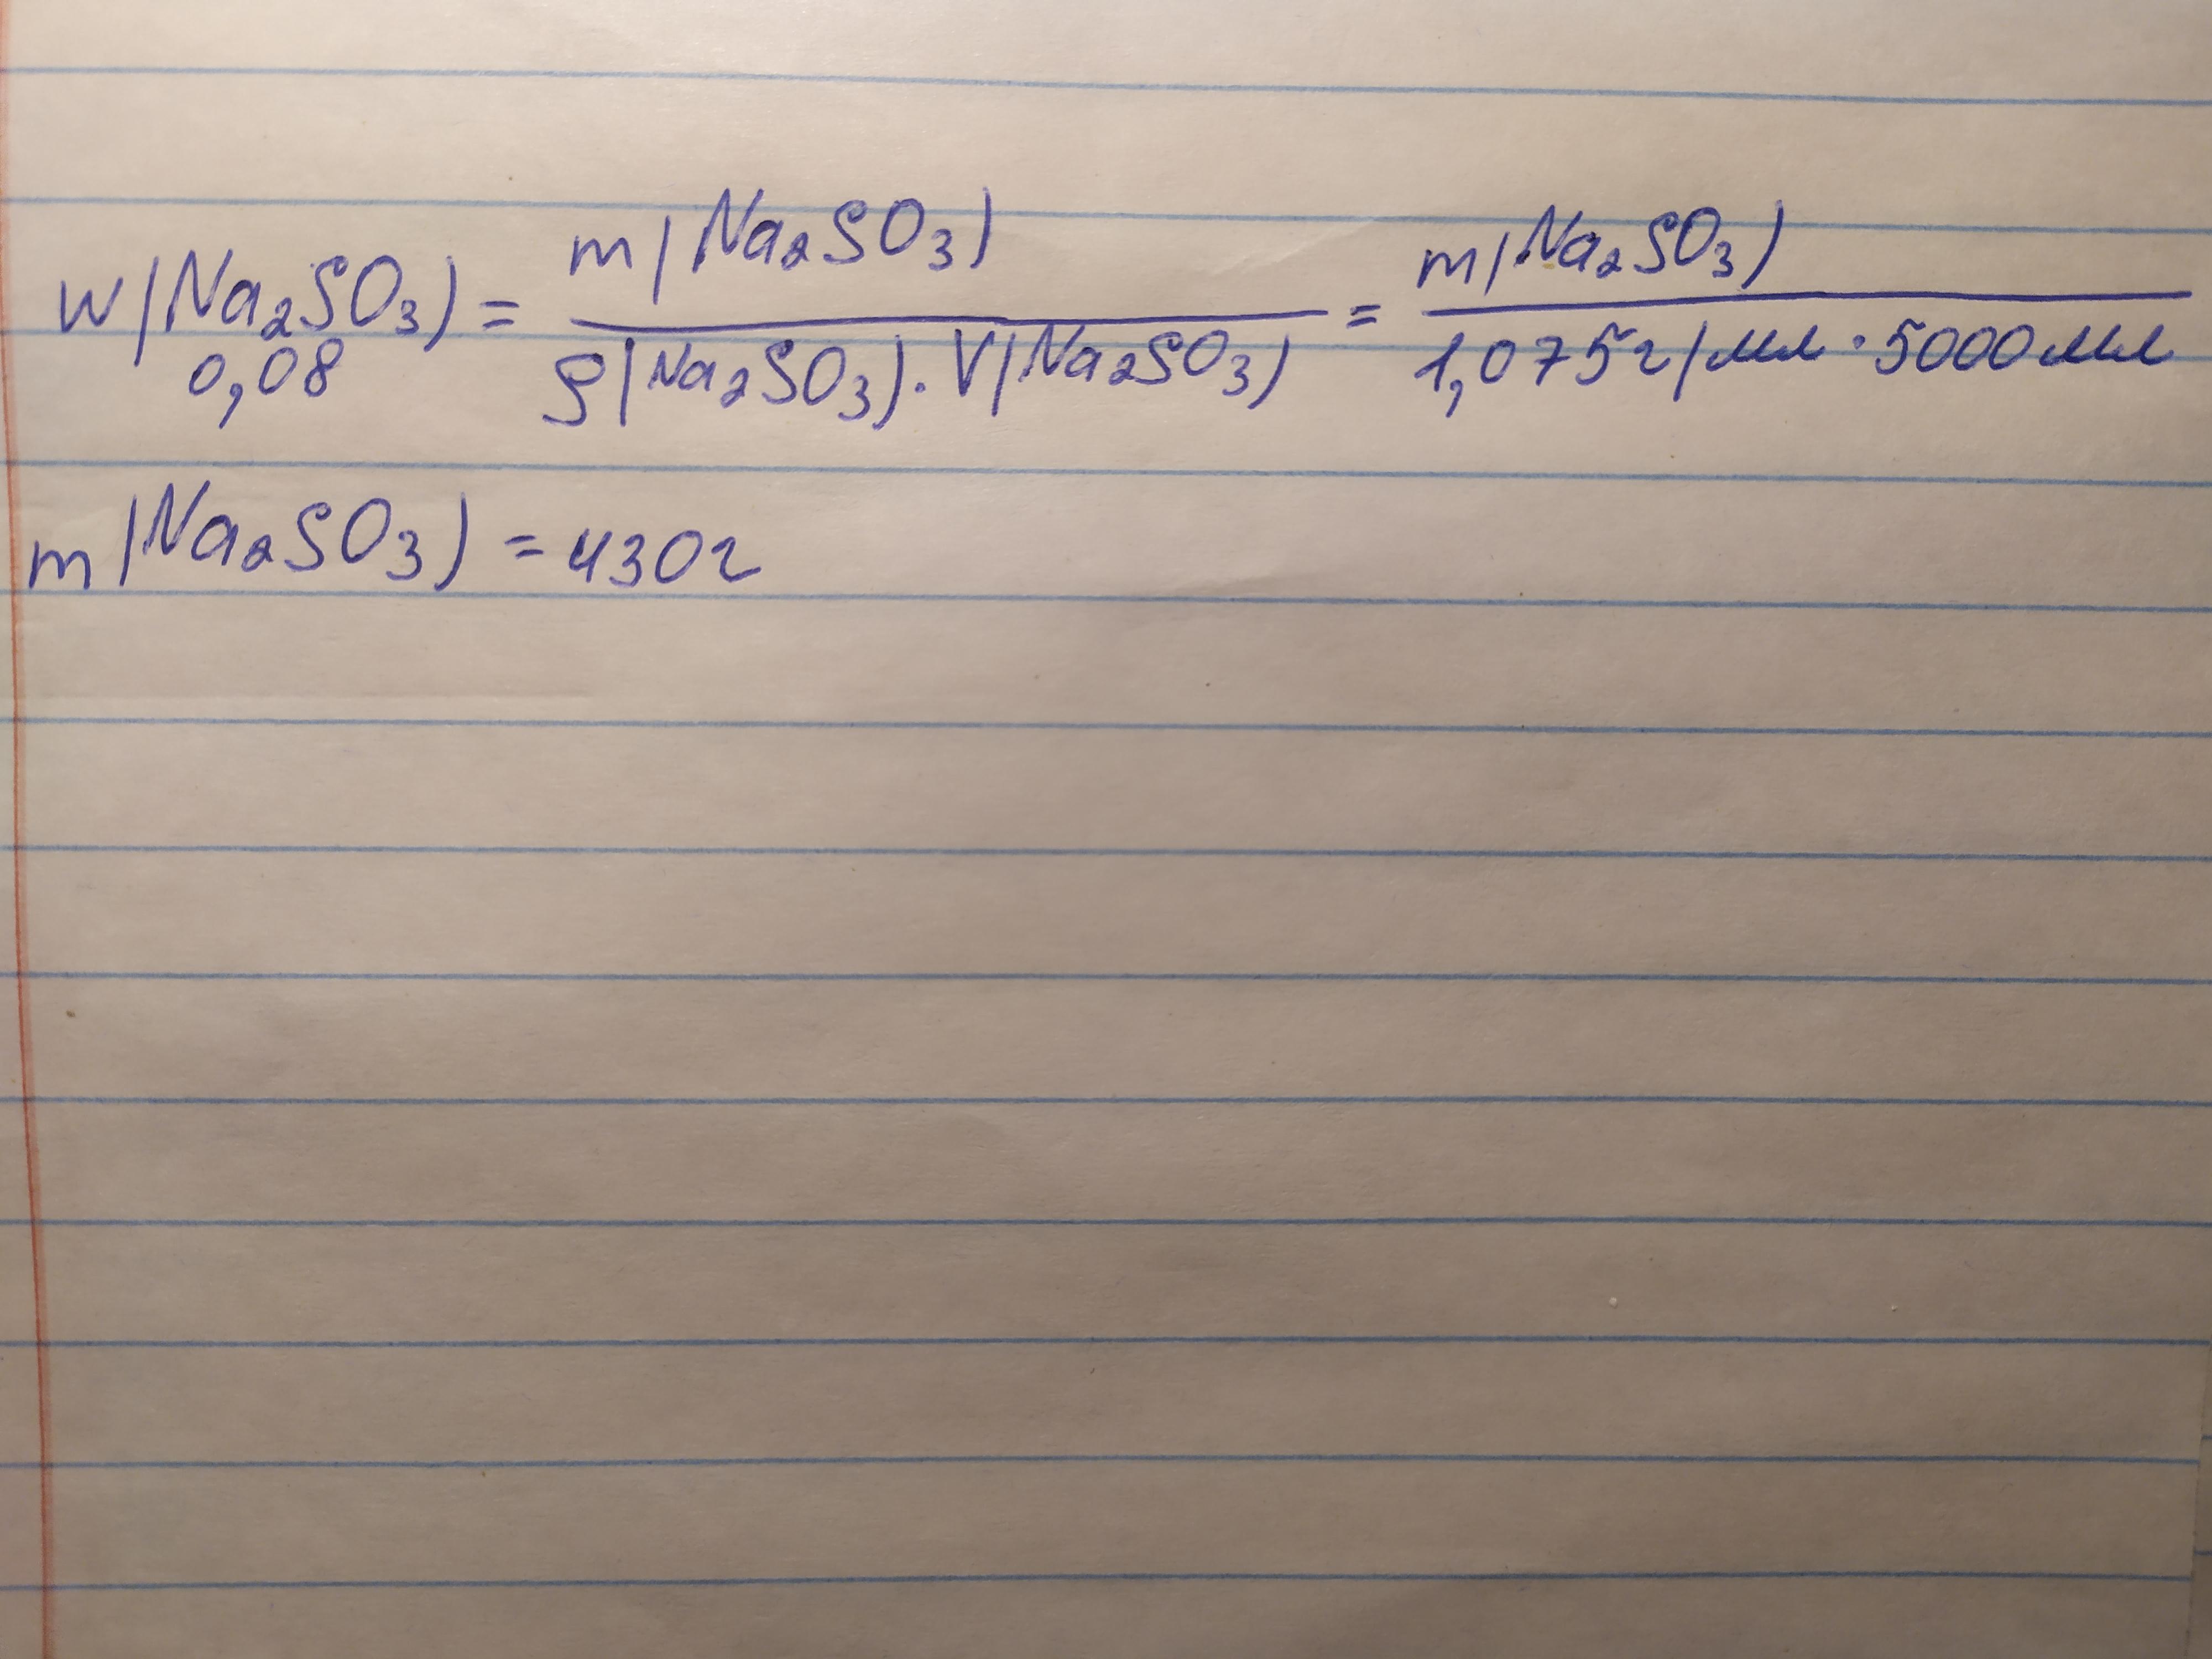 w(Na₂SO₃) = m(Na₂SO₃) / ρ(Na₂SO₃) · V(Na₂SO₃) = m(Na₂SO₃) / 1,075г/мл · 5000мл
0,08
m(Na₂SO₃) = 430г